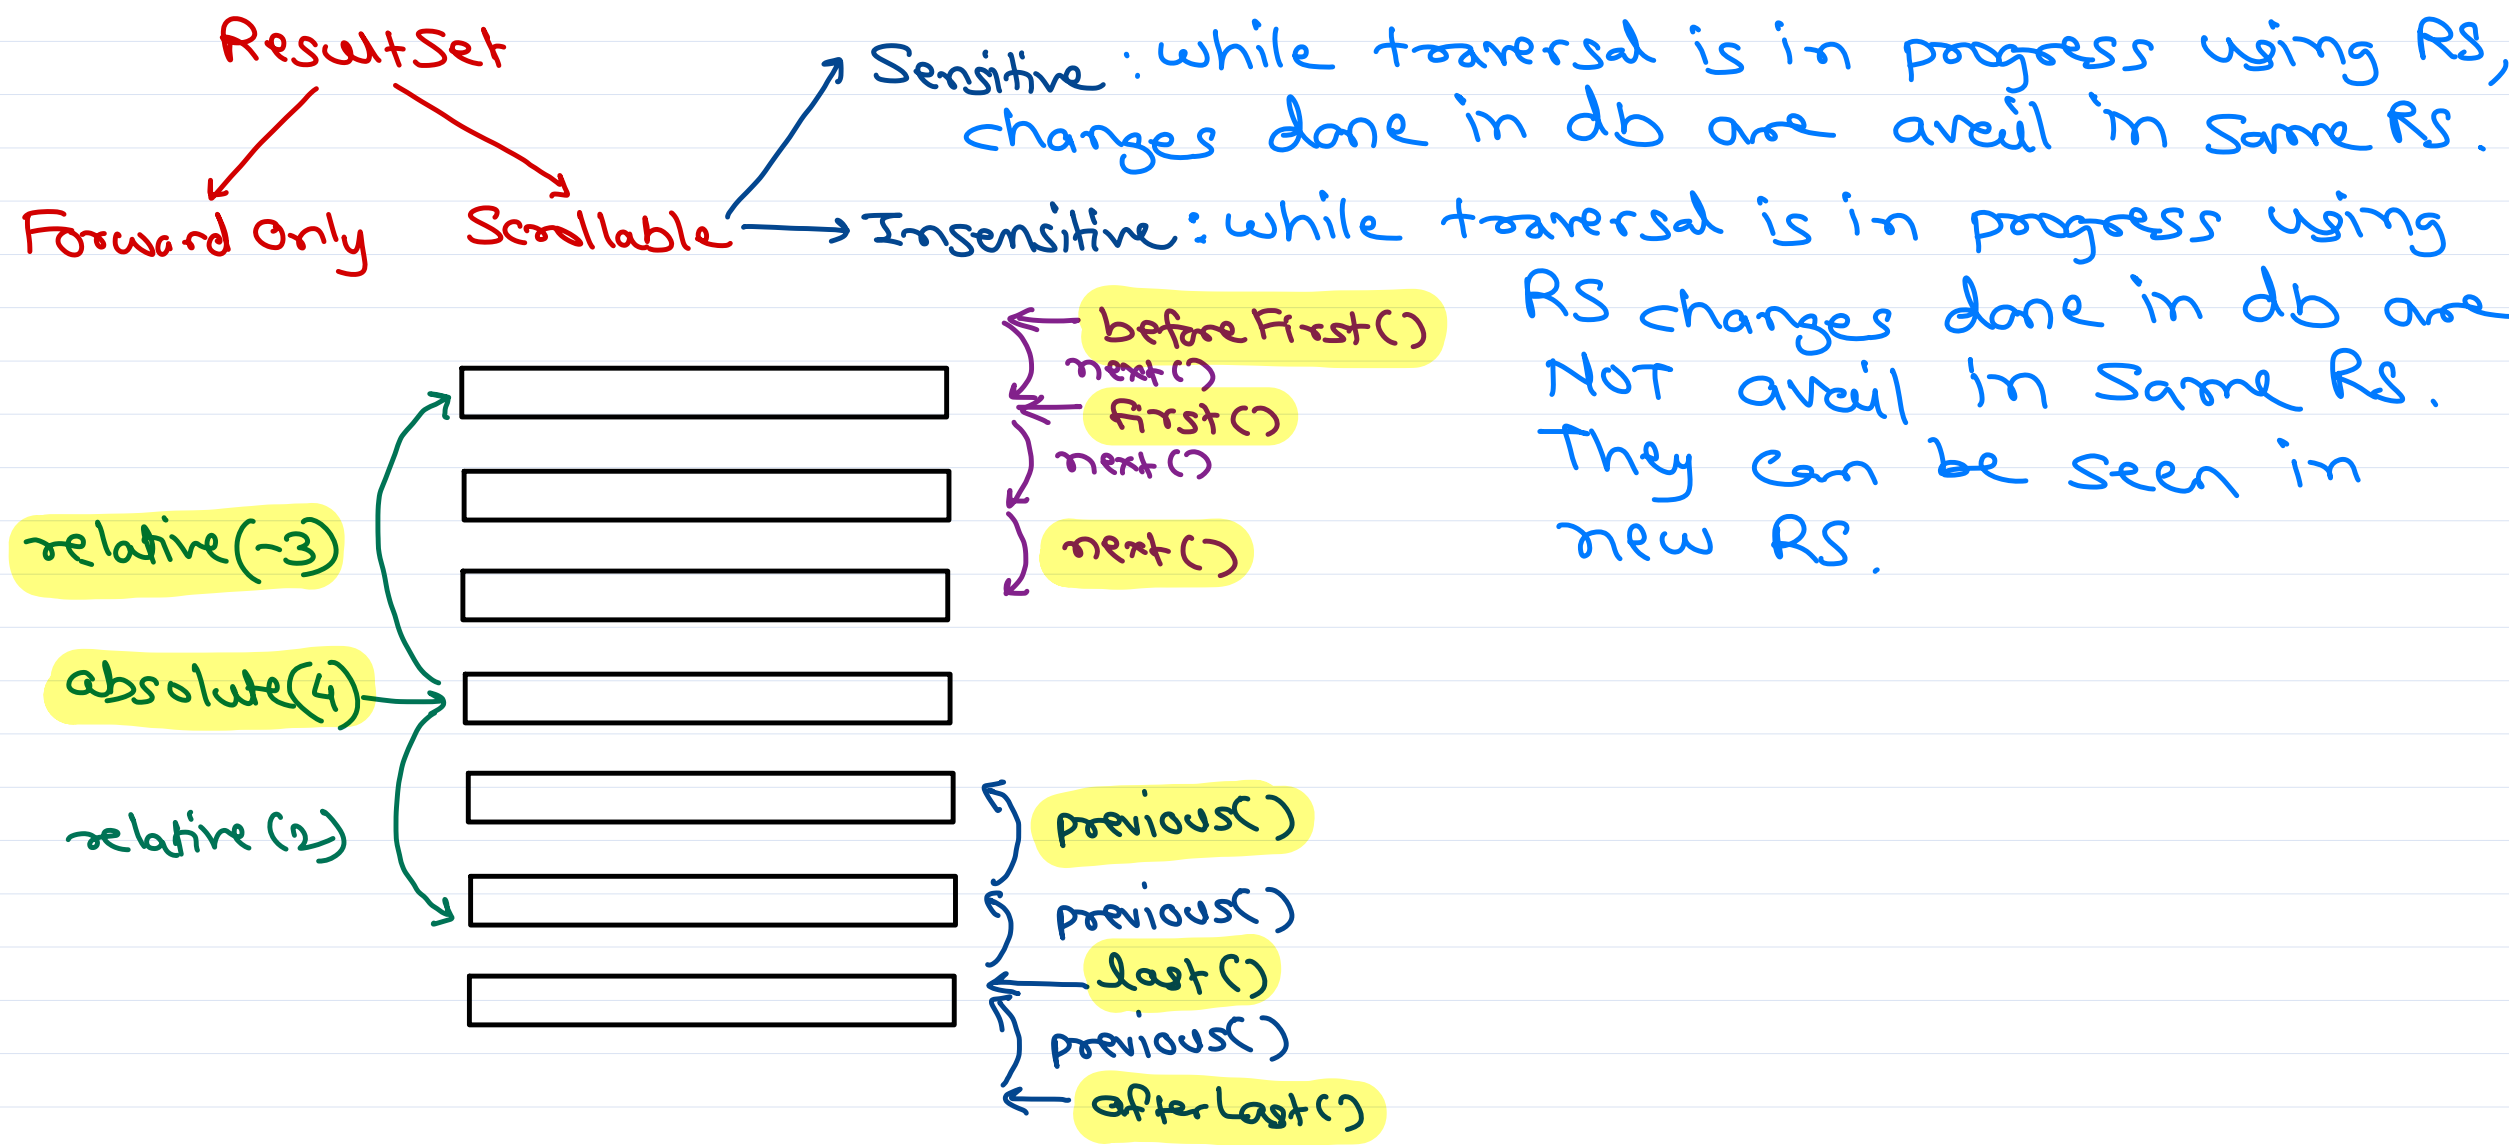 ResultSet
Sensitive : while traversal is in progress using RS,
changes done in db are avail in same RS.
Forward Only
Scrollable
Insensitive : while traversal is in progress, using
RS changes done in db are
NOT avail in same RS.
They can be seen in
new RS.
beforeFirst()
next()
first()
next()
next()
relative(-3)
absolute(4)
relative(2)
previous()
previous()
last()
previous()
afterLast()